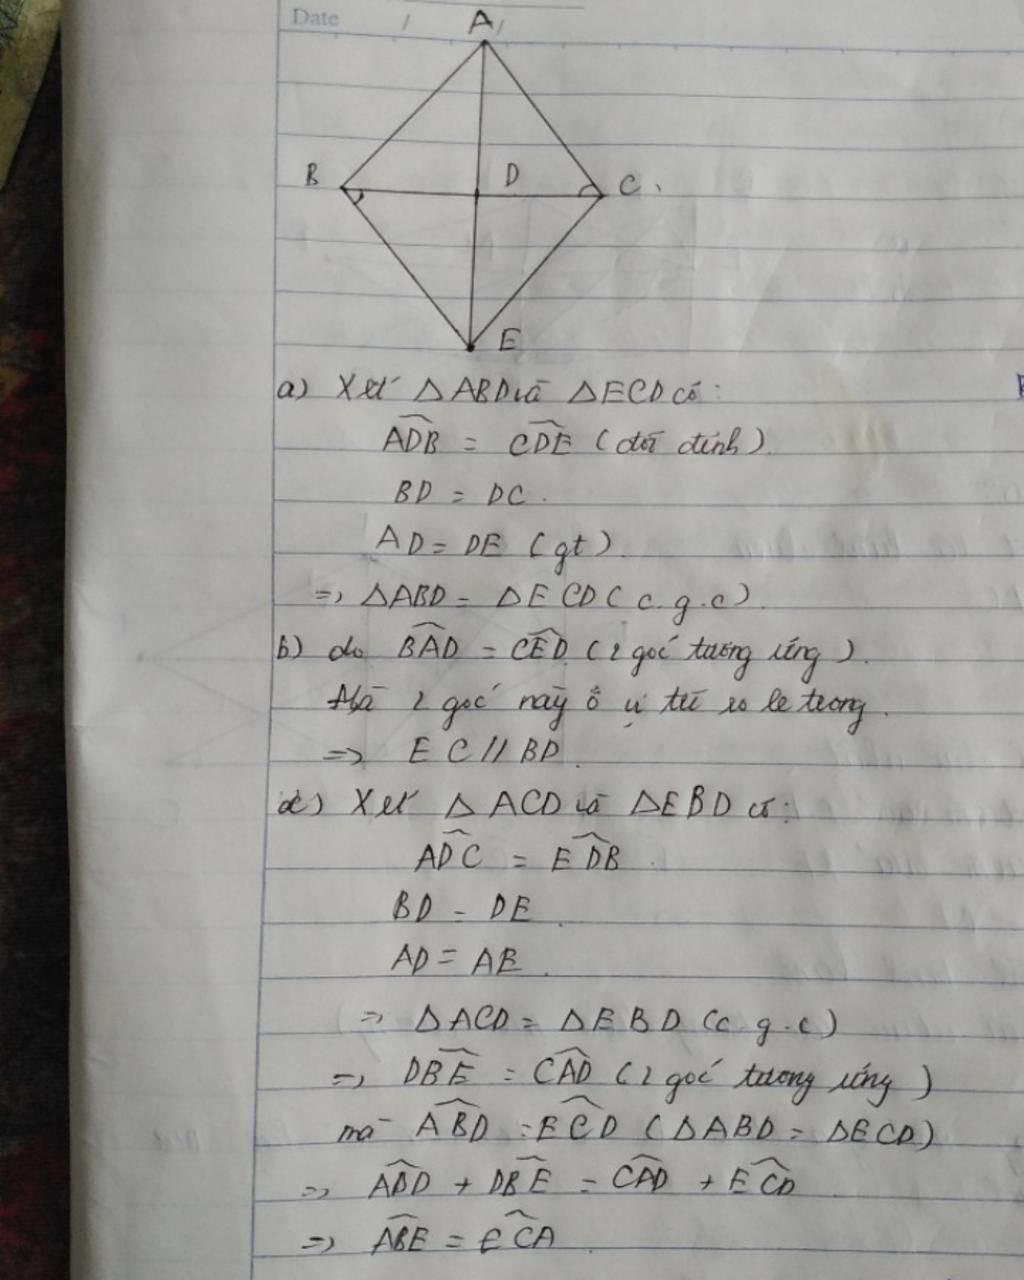 Date / /
A
B D C
E
a) Xét △ABD và △ECD có:
ADB = CDE (đối đỉnh).
BD = DC.
AD = DE (gt).
=> △ABD = △ECD (c.g.c).
b) do BAD = CED (2 góc tương ứng).
Mà 2 góc này ở vị trí so le trong.
=> EC // BD.
c) Xét △ACD và △EBD có:
ADC = EDB.
BD = DE.
AD = AE.
=> △ACD = △EBD (c g.c)
=> DBE = CAD (2 góc tương ứng)
mà ABD = ECD (△ABD = △ECD)
=> ABD + DBE = CAD + ECD
=> ABE = ECA.